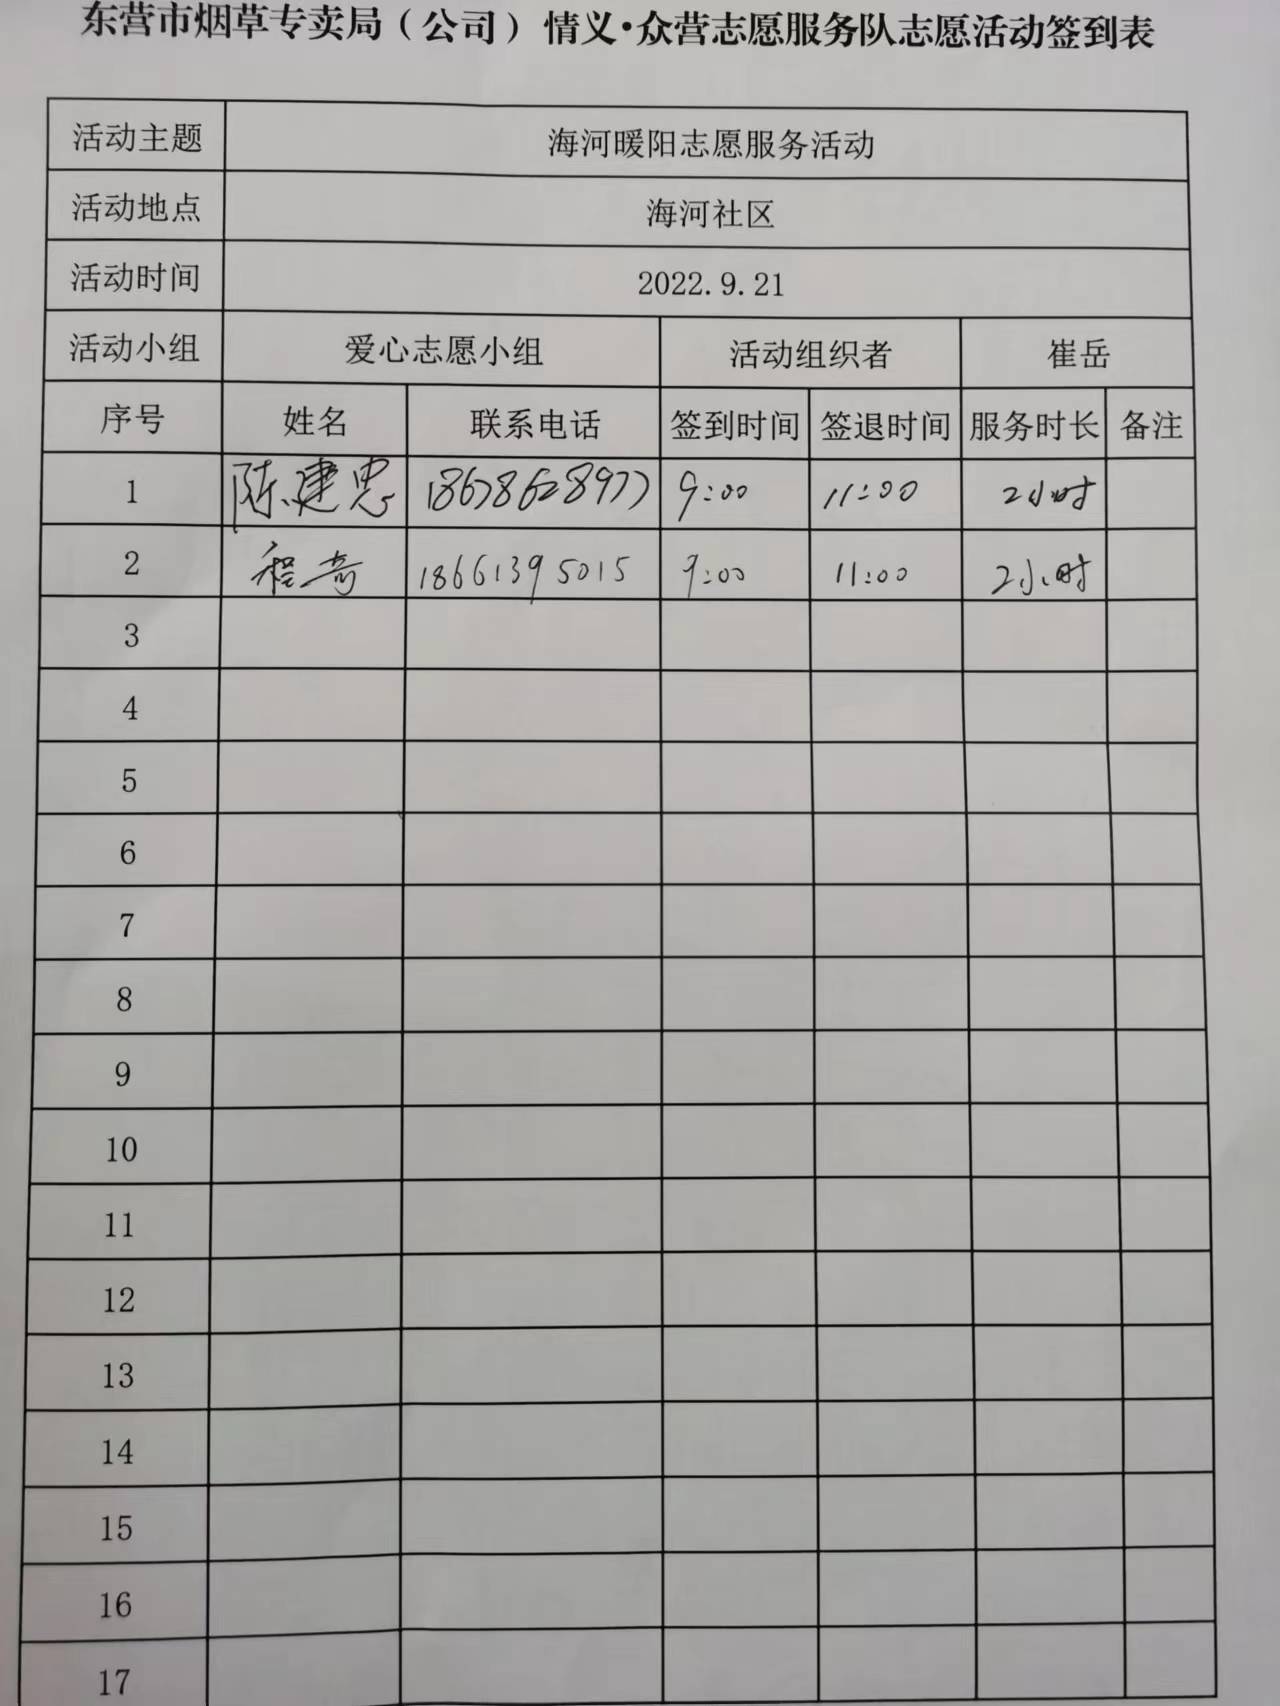 东营市烟草专卖局（公司）情义·众营志愿服务队志愿活动签到表
活动主题 海河暖阳志愿服务活动
活动地点 海河社区
活动时间 2022.9.21
活动小组 爱心志愿小组 活动组织者 崔岳
序号 姓名 联系电话 签到时间 签退时间 服务时长 备注
1 陈建忠 18678628977 9:00 11:00 2小时
2 程奇 18661395015 9:00 11:00 2小时
3
4
5
6
7
8
9
10
11
12
13
14
15
16
17